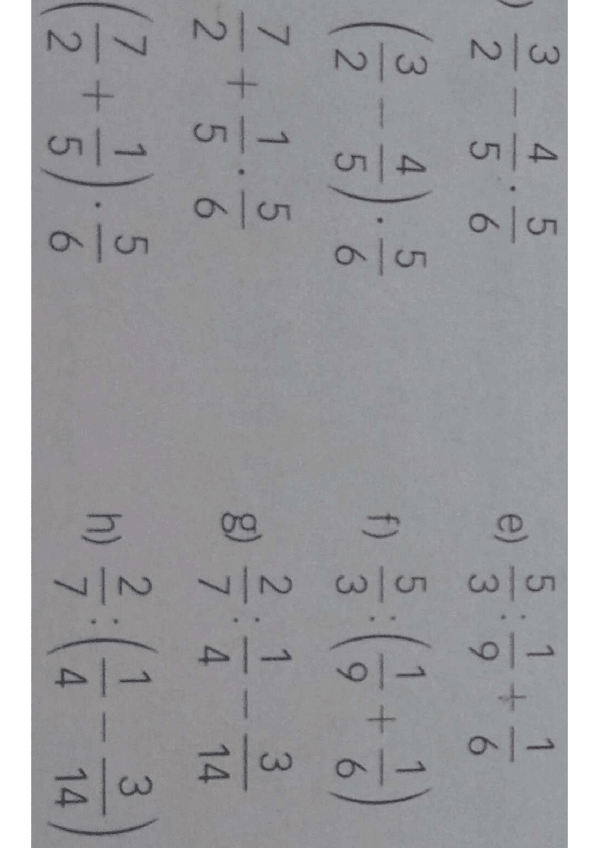 ) 3/2 − 4/5 · 5/6
(3/2 − 4/5) · 5/6
7/2 + 1/5 · 5/6
(7/2 + 1/5) · 5/6
e) 5/3 : 1/9 + 1/6
f) 5/3 : (1/9 + 1/6)
g) 2/7 : 1/4 − 3/14
h) 2/7 : (1/4 − 3/14)